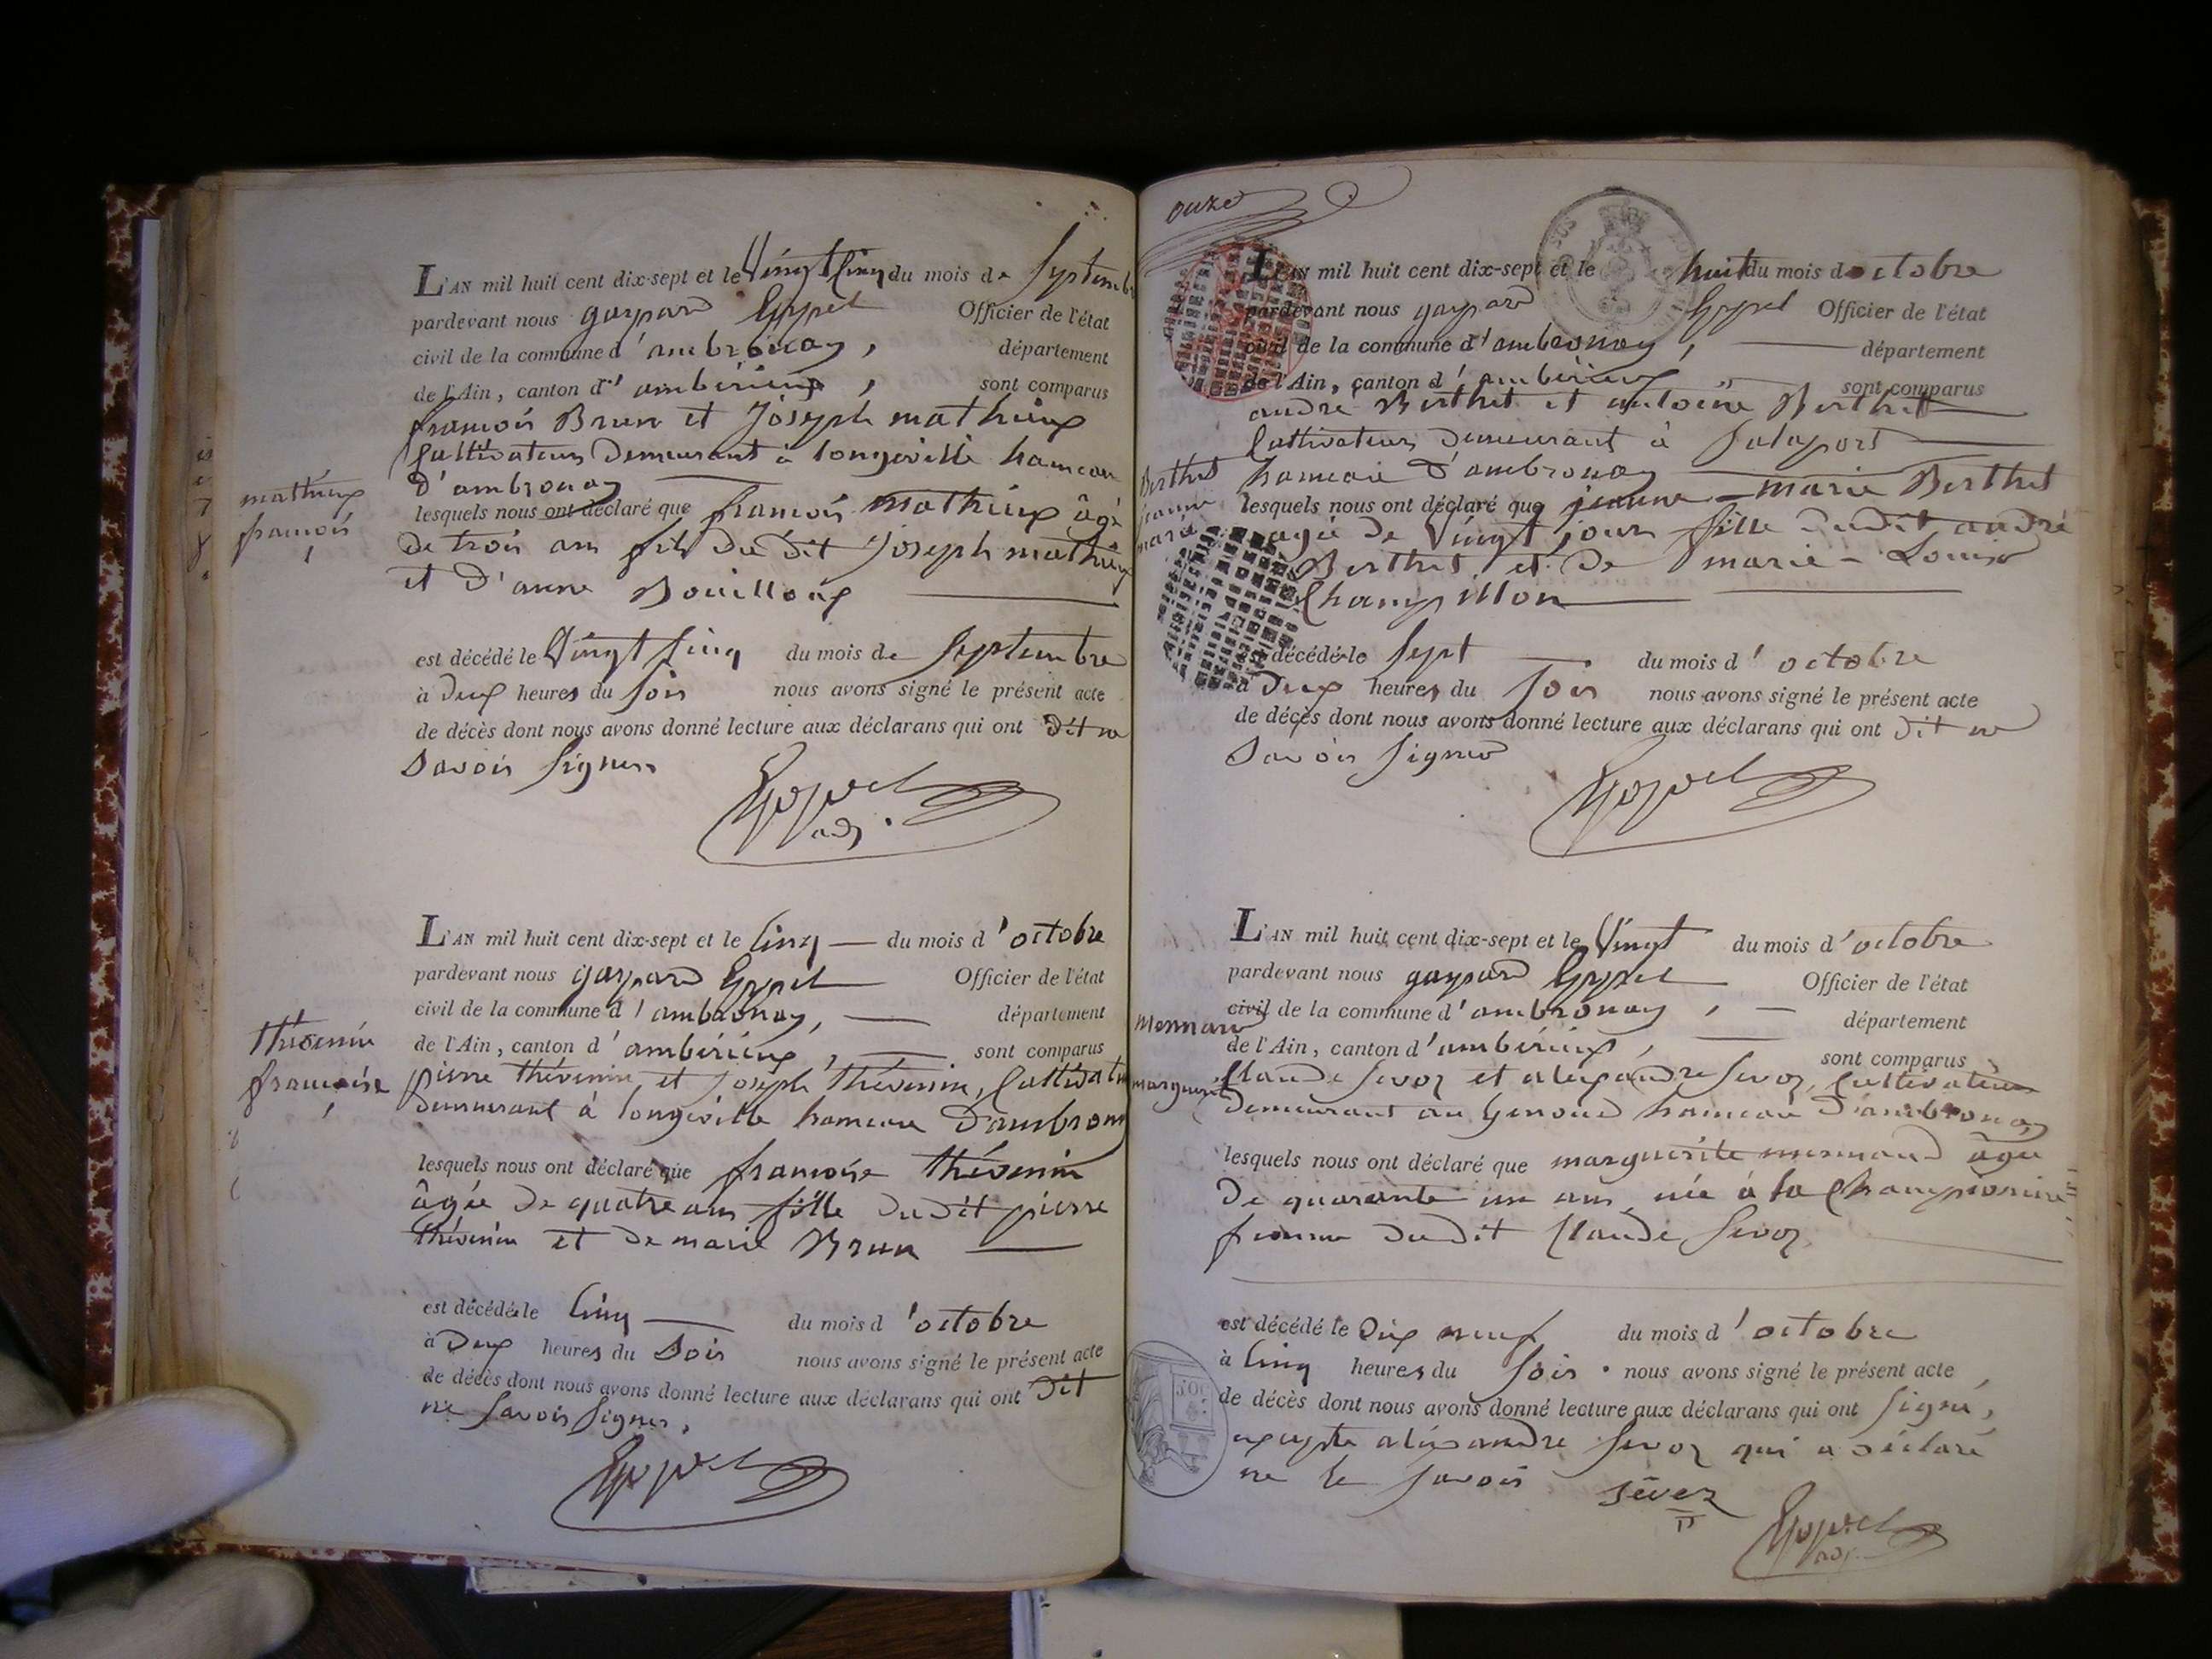 L'AN mil huit cent dix-sept et le Vingt Cinq du mois de Septembre
pardevant nous gaspard Gyppel Officier de l'état
civil de la commune d'ambronay, département
de l'Ain, canton d'ambérieux, sont comparus
françois Brun et Joseph mathieux
Cultivateurs Demeurant à longeville hameau
d'ambronay
mathieux
françois
lesquels nous ont déclaré que françois mathieux âgé
de trois ans fils du dit Joseph mathieux
et d'anne Bouilloux
est décédé le Vingt Cinq du mois de Septembre
à Deux heures du soir nous avons signé le présent acte
de décès dont nous avons donné lecture aux déclarans qui ont Dit ne
Savoir Signer
L'AN mil huit cent dix-sept et le Cinq du mois d'octobre
pardevant nous gaspard Gyppel Officier de l'état
civil de la commune d'ambronay, département
de l'Ain, canton d'ambérieux, sont comparus
thévenin
françoise
pierre thévenin et Joseph thévenin, Cultivateurs
Demeurant à longeville hameau D'ambronay
lesquels nous ont déclaré que françoise thévenin
âgée De quatre ans fille Dudit pierre
thévenin et De marie Brun
est décédée le Cinq du mois d'octobre
à Deux heures du Soir nous avons signé le présent acte
de décès dont nous avons donné lecture aux déclarans qui ont Dit
ne Savoir Signer,
onze
L'AN mil huit cent dix-sept et le huit du mois d'octobre
pardevant nous gaspard Gyppel Officier de l'état
civil de la commune d'ambronay, département
de l'Ain, canton d'ambérieux sont comparus
andré Berthet et antoine Berthet
Cultivateurs Demeurant à Salaport
hameau D'ambronay
Berthet
jeanne
marie
lesquels nous ont déclaré que jeanne-marie Berthet
agée de Vingt jours fille dudit andré
Berthet et De marie-Louise
Champillon
est décédée le Sept du mois d'octobre
à Deux heures du Soir nous avons signé le présent acte
de décès dont nous avons donné lecture aux déclarans qui ont Dit ne
Savoir Signer
L'AN mil huit cent dix-sept et le Vingt du mois d'octobre
pardevant nous gaspard Gyppel Officier de l'état
civil de la commune d'ambronay, département
de l'Ain, canton d'ambérieux, sont comparus
Mermand
marguerite
Claude Sevoz et alexandre Sevoz, Cultivateurs
Demeurant au Genoud hameau D'ambronay
lesquels nous ont déclaré que marguerite mermand âgée
De quarante un ans, née à la
femme Dudit Claude Sevoz
est décédé le Dix neuf du mois d'octobre
à Cinq heures du Soir nous avons signé le présent acte
de décès dont nous avons donné lecture aux déclarans qui ont Signé,
excepté alexandre Sevoz qui a Déclaré
ne le Savoir
Sevoz